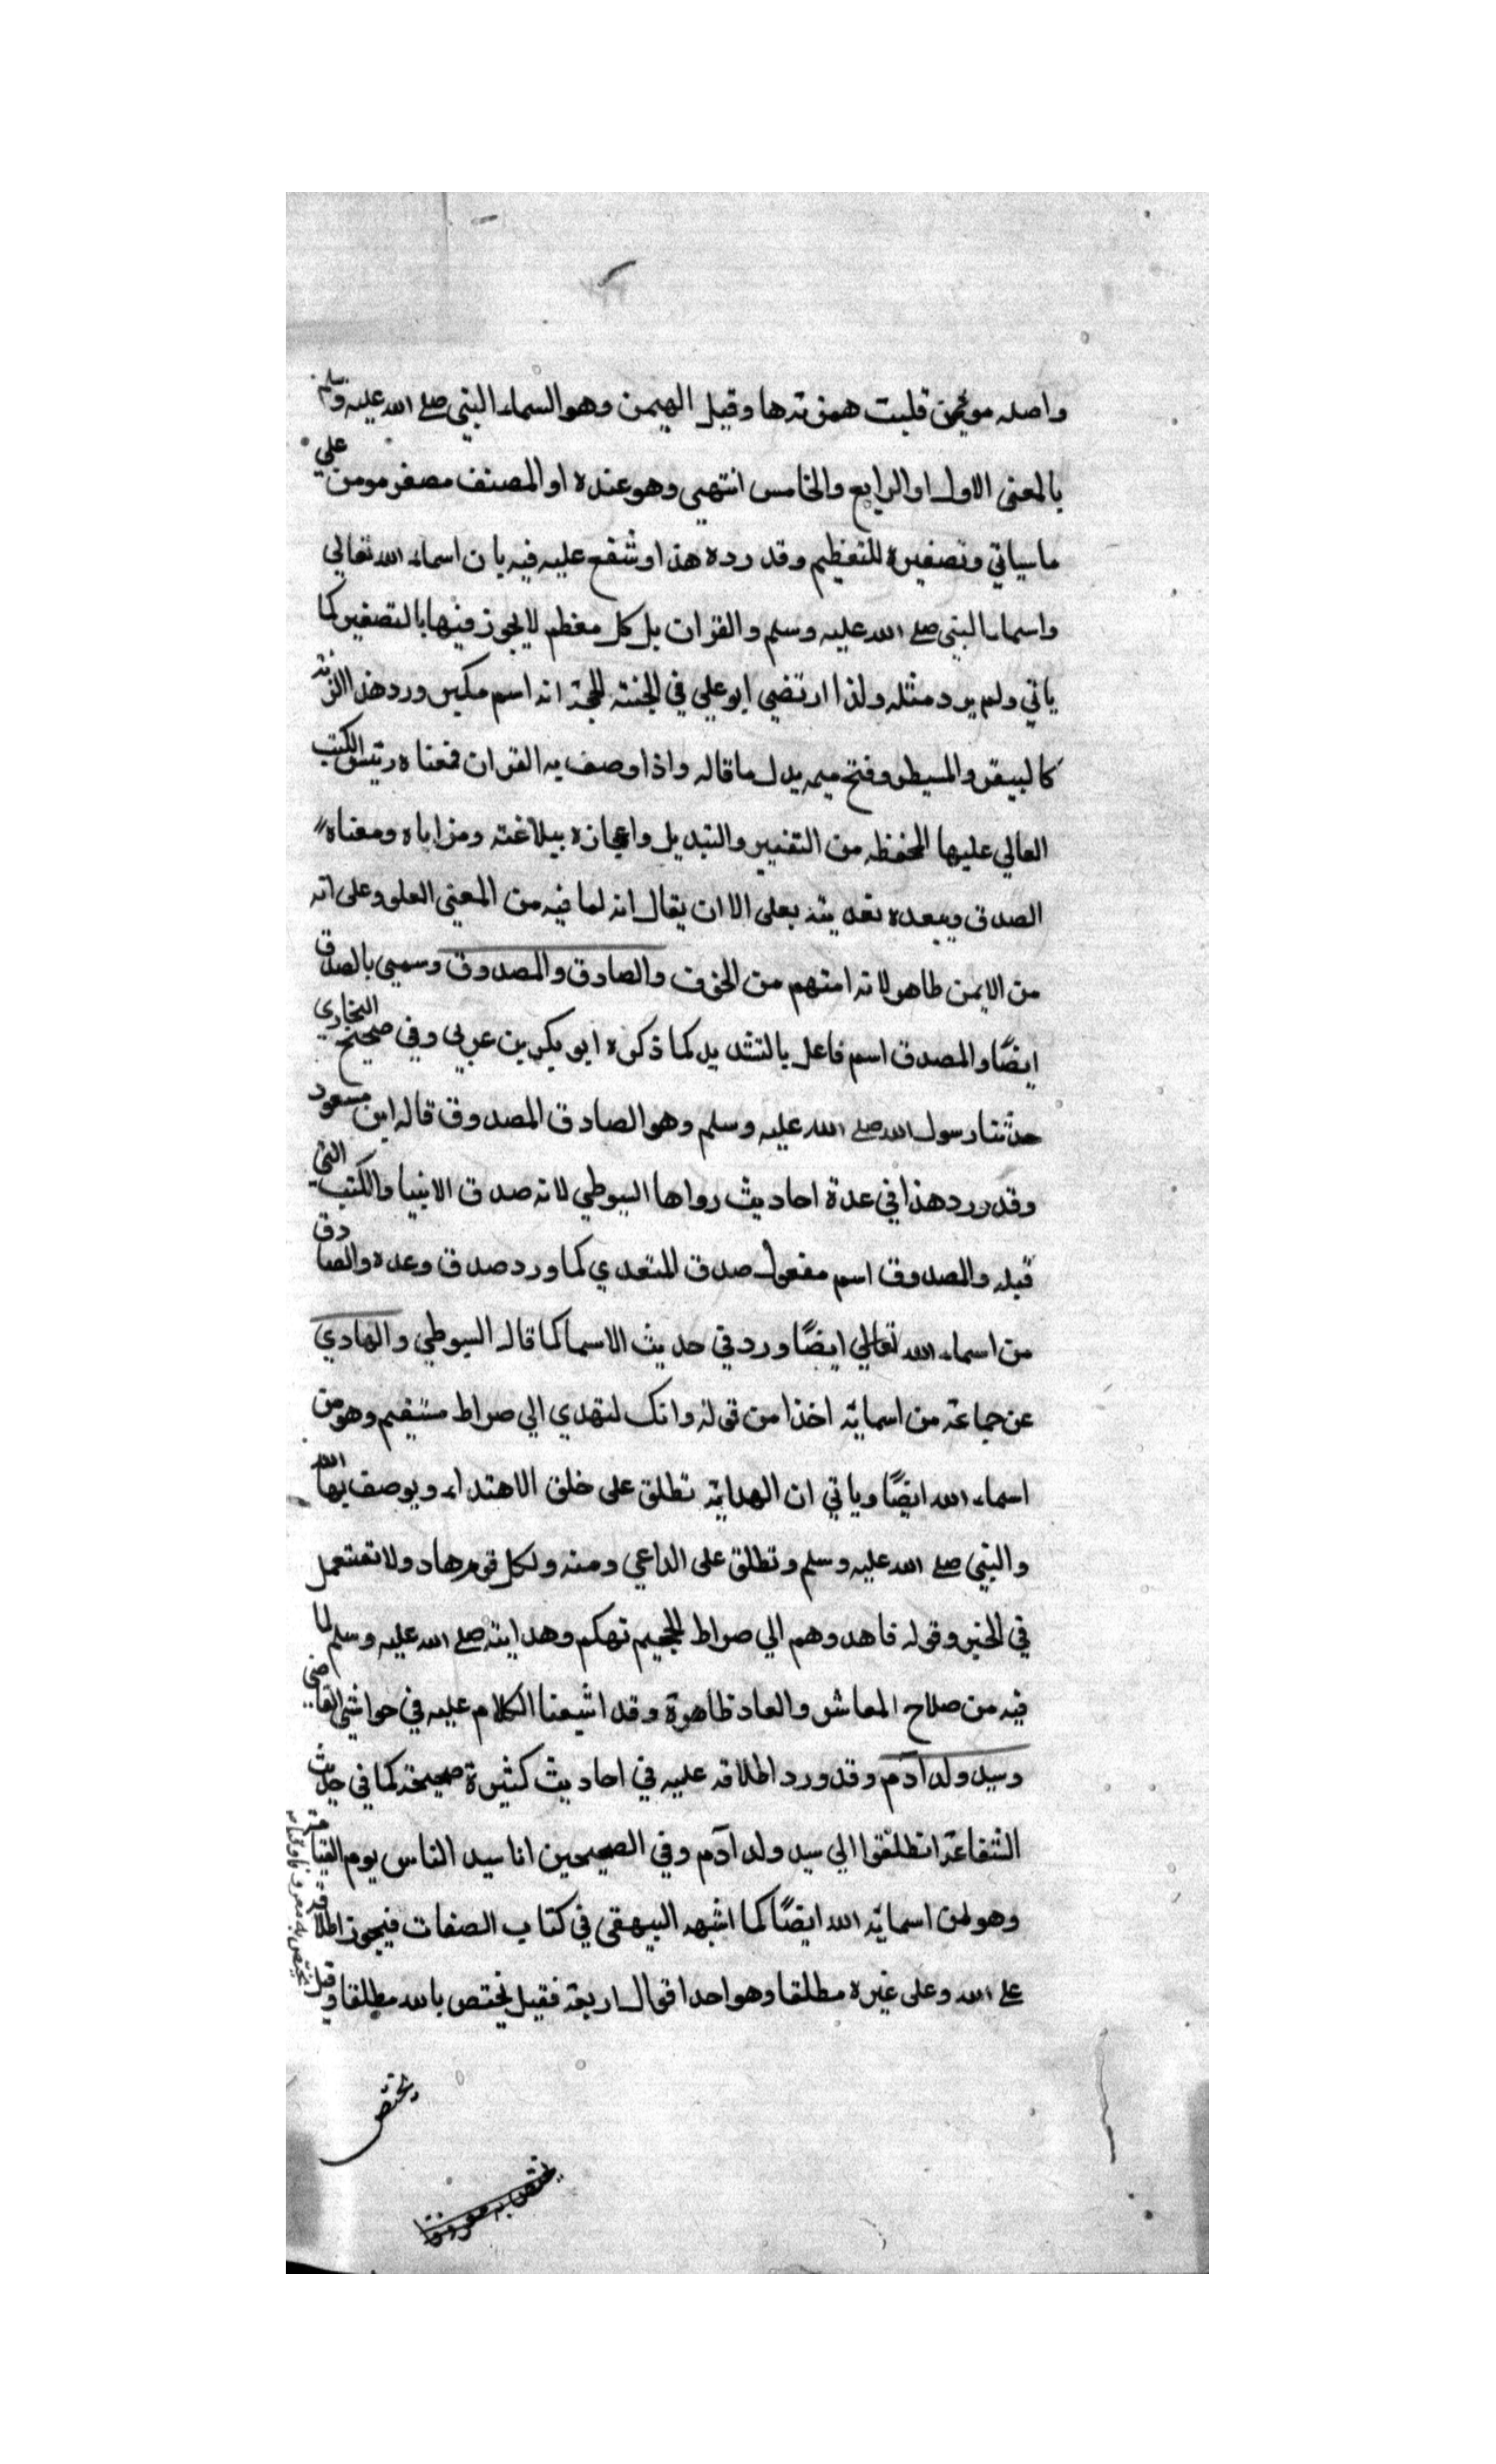 واصله مويمن قلبت همزته ها وقيل المهيمن وهو السماء النبي صلے الله عليه وسلم
بالمعنى الاول او الرابع والخامس انتهي وهو عنده او المصنف مصغر مومن على
ما سياتي وتصغيره للتعظيم وقد رده هذا وشنع عليه فيه بان اسماء الله تعالي
واسماء النبي صلے الله عليه وسلم والقران بل كل معظم لا يجوز فيها بالتصغير كما
ياتي ولم يرد مثله ولذا ارتضي ابو علي في الحجة انه اسم مكبر ورد هذا الزنة
كالبيقر والمسيطر وفتح ميمه يدل ما قاله واذا وصف به القران فمعناه رئيس الكتب
العالي عليها لحفظه من التغيير والتبديل واعجازه ببلاغته ومزاياه ومعناه
الصدق ويبعده تعديته بعلى الا ان يقال انه لما فيه من المعني العلو وعلى انه
من الايمن طاهر لانه امنهم من الخوف والصادق والمصدوق وسمي بالصدق
ايضًا والمصدق اسم فاعل بالتشديد كما ذكره ابو بكر بن عربي وفي صحيح البخاري
حدثنا رسول الله صلے الله عليه وسلم وهو الصادق المصدوق قاله ابن مسعود
وقد ورد هذا في عدة احاديث رواها السيوطي لانه صدق الانبيا والكتب التي
قبله والمصدوق اسم مفعول صدق للمتعدي كما ورد صدق وعده والصادق
من اسماء الله تعالي ايضًا ورد في حديث الاسما كما قاله السيوطي والهادي
عن جماعة من اسمايه اخذا من قوله وانك لتهدي الي صراط مستقيم وهو من
اسماء الله ايضًا وياتي ان الهداية تطلق على خلق الاهتداء ويوصف بها الله
والنبي صلے الله عليه وسلم وتطلق على الداعي ومنه ولكل قوم هاد ولا تستعمل
في الخير وقوله فاهدوهم الي صراط الجحيم تهكم وهدايته صلے الله عليه وسلم لما
فيه من صلاح المعاش والعاد ظاهرة وقد اشبعنا الكلام عليه في حواشي القاضي
وسيد ولد آدم وقد ورد اطلاقه عليه في احاديث كثيرة صحيحة كما في حديث
الشفاعة انطلقوا الي سيد ولد آدم وفي الصحيحين انا سيد الناس يوم القيامة
وهو من اسمايه الله ايضًا كما اثبته البيهقي في كتاب الصفات فيجوز اطلاقه
على الله وعلى غيره مطلقا وهو احد اقوال اربعة فقيل يختص بالله مطلقا وقيل
يختص
يختص به معرفا